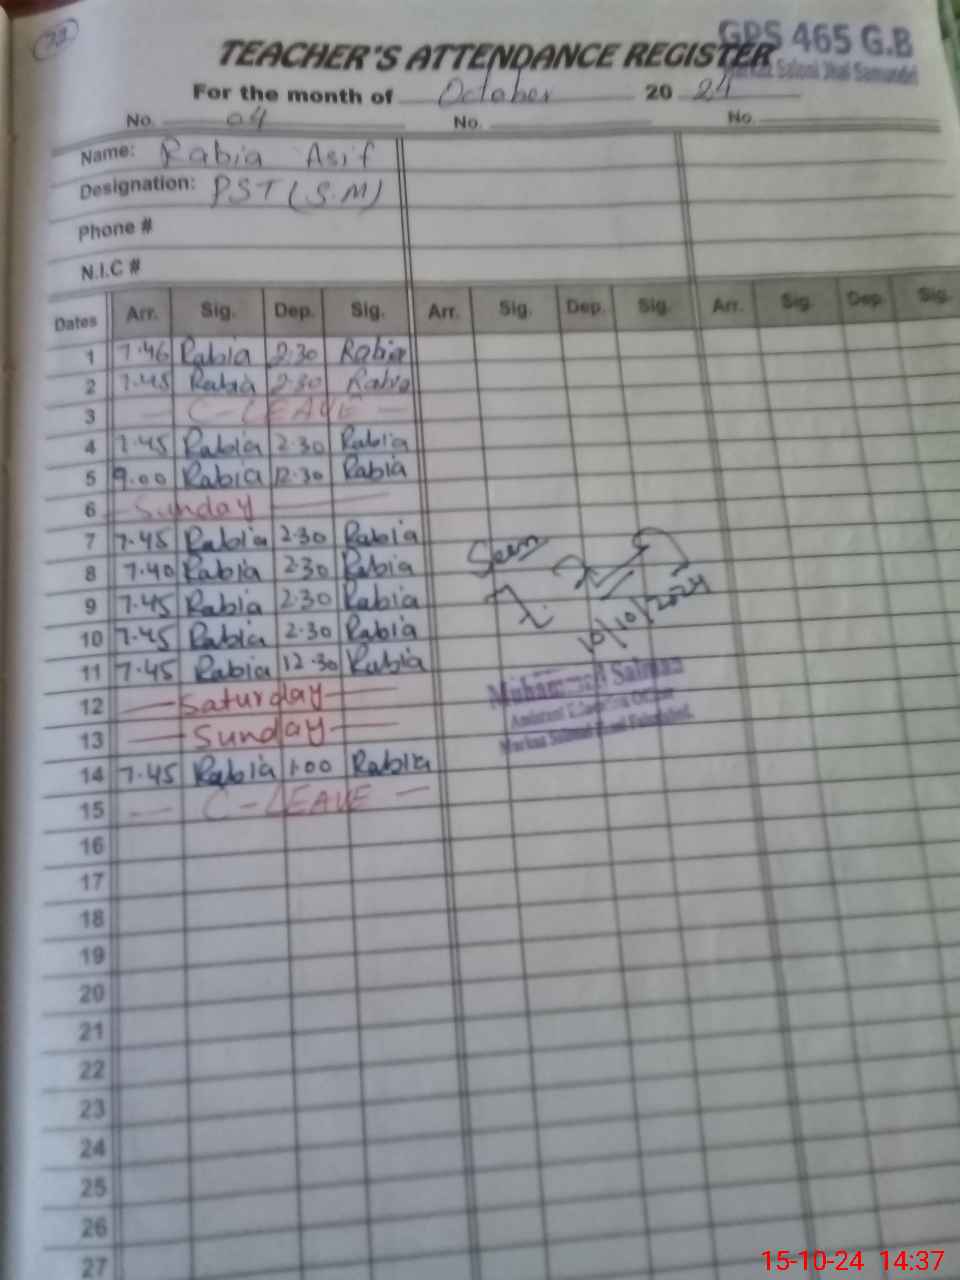 22
GPS 465 G.B
TEACHER'S ATTENDANCE REGISTER
Markaz Saloni Jhal Samundri
For the month of October 20 24
No. 04 No. No.
Name: Rabia Asif
Designation: PST (S.M)
Phone #
N.I.C #
Dates Arr. Sig. Dep. Sig. Arr. Sig. Dep. Sig. Arr. Sig. Dep. Sig.
1 7.46 Rabia 2:30 Rabia
2 7.45 Rabia 2:30 Rabia
3 — C-LEAVE —
4 7.45 Rabia 2.30 Rabia
5 9.00 Rabia 12.30 Rabia
6 Sunday
7 7.45 Rabia 2.30 Rabia
8 7.40 Rabia 2.30 Rabia
9 7.45 Rabia 2.30 Rabia
10 7.45 Rabia 2.30 Rabia
11 7.45 Rabia 12.30 Rabia
12 — Saturday —
13 — Sunday —
14 7.45 Rabia 1.00 Rabia
15 — C-LEAVE —
16
17
18
19
20
21
22
23
24
25
26
27
Seen
10/10/2024
Muhammad Salman
Assistant Education Officer
Markaz Saloni Jhal Faisalabad.
15-10-24 14:37